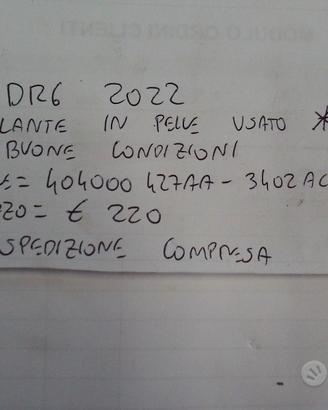 DR6 2022
LANTE IN PELLE USATO *
BUONE CONDIZIONI
E = 404000 427AA - 3402 AC
ZO = € 220
SPEDIZIONE COMPRESA
MODULO ORDINI CLIENTI